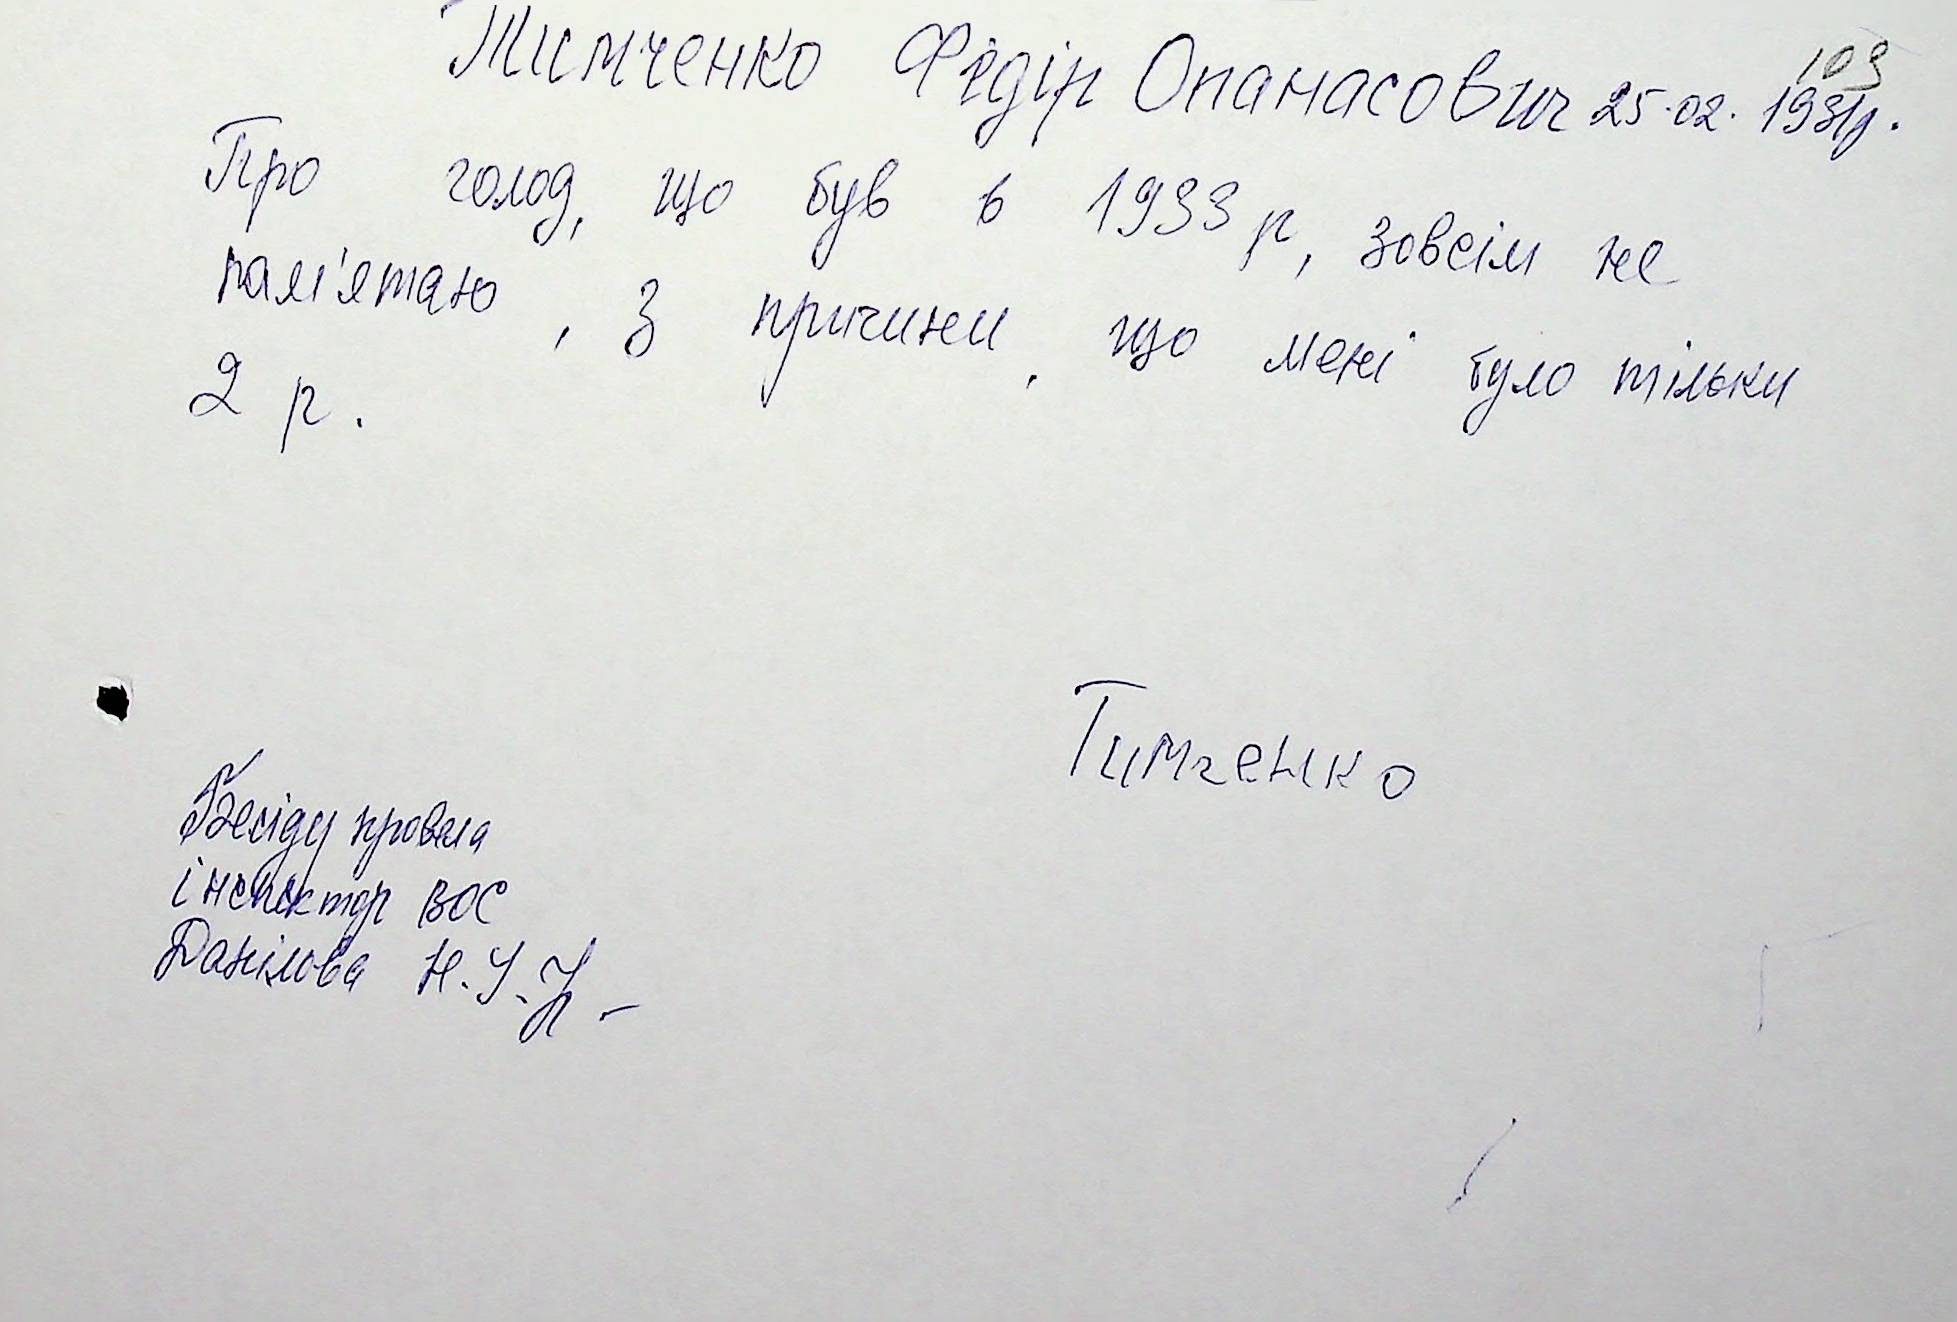 103
Тимченко Федір Опанасович 25.02.1931р.
Про голод, що був в 1933 р, зовсім не
пам'ятаю, з причини, що мені було тільки
2 р.
Тимченко
Бесіду провела
інспектор ВОС
Данілова Н.У.